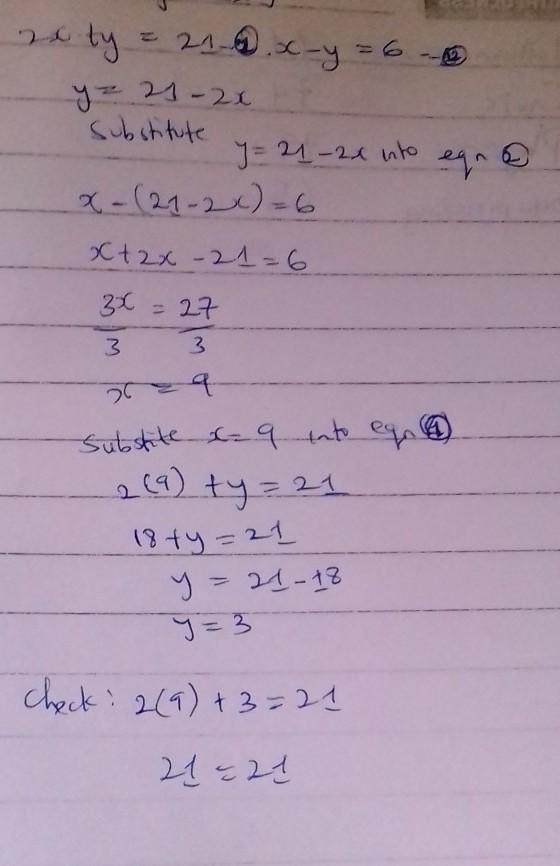 2x + y = 21 - ①. x - y = 6 - ②
y = 21 - 2x
Substitute y = 21 - 2x into eqn ②
x - (21 - 2x) = 6
x + 2x - 21 = 6
3x = 27
3 3
x = 9
Substite x = 9 into eqn ①
2(9) + y = 21
18 + y = 21
y = 21 - 18
y = 3
Check: 2(9) + 3 = 21
21 = 21